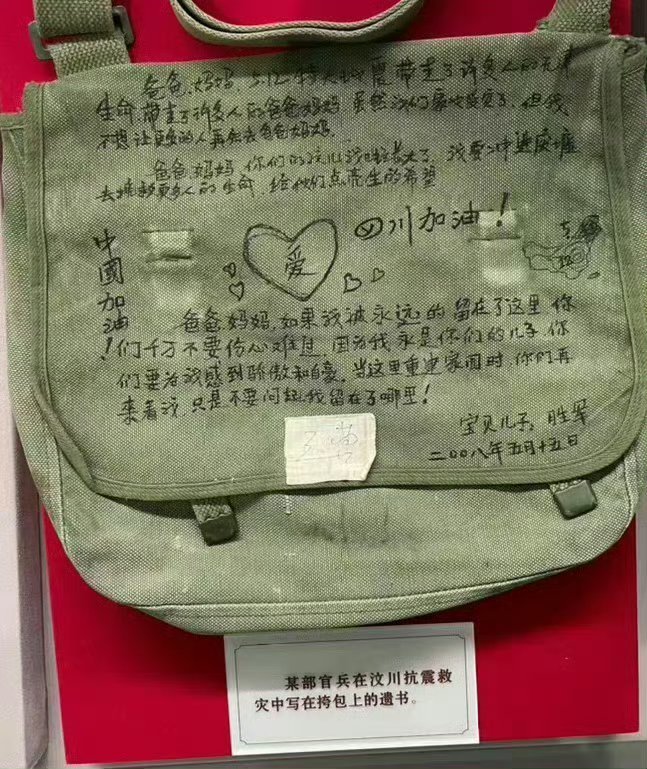 爸爸,妈妈,5.12特大地震带走了许多人的
生命,带走了许多人的爸爸妈妈 虽然我们 但我
不想让更多的人再失去爸爸妈妈.
爸爸妈妈,你们的孩儿 长大了,我要冲进废墟
去挽救更多人的生命,给他们点亮生的希望
四川加油!
爱
中國加油!
爸爸妈妈,如果我被永远的留在了这里,你
们千万不要伤心难过,因为我永是你们的儿子,你
们要为我感到骄傲和自豪,当这里重建家园时,你们再
来看我,只是不要问起我留在了哪里!
宝贝儿子:胜军
二00八年五月十五日
某部官兵在汶川抗震救
灾中写在挎包上的遗书。